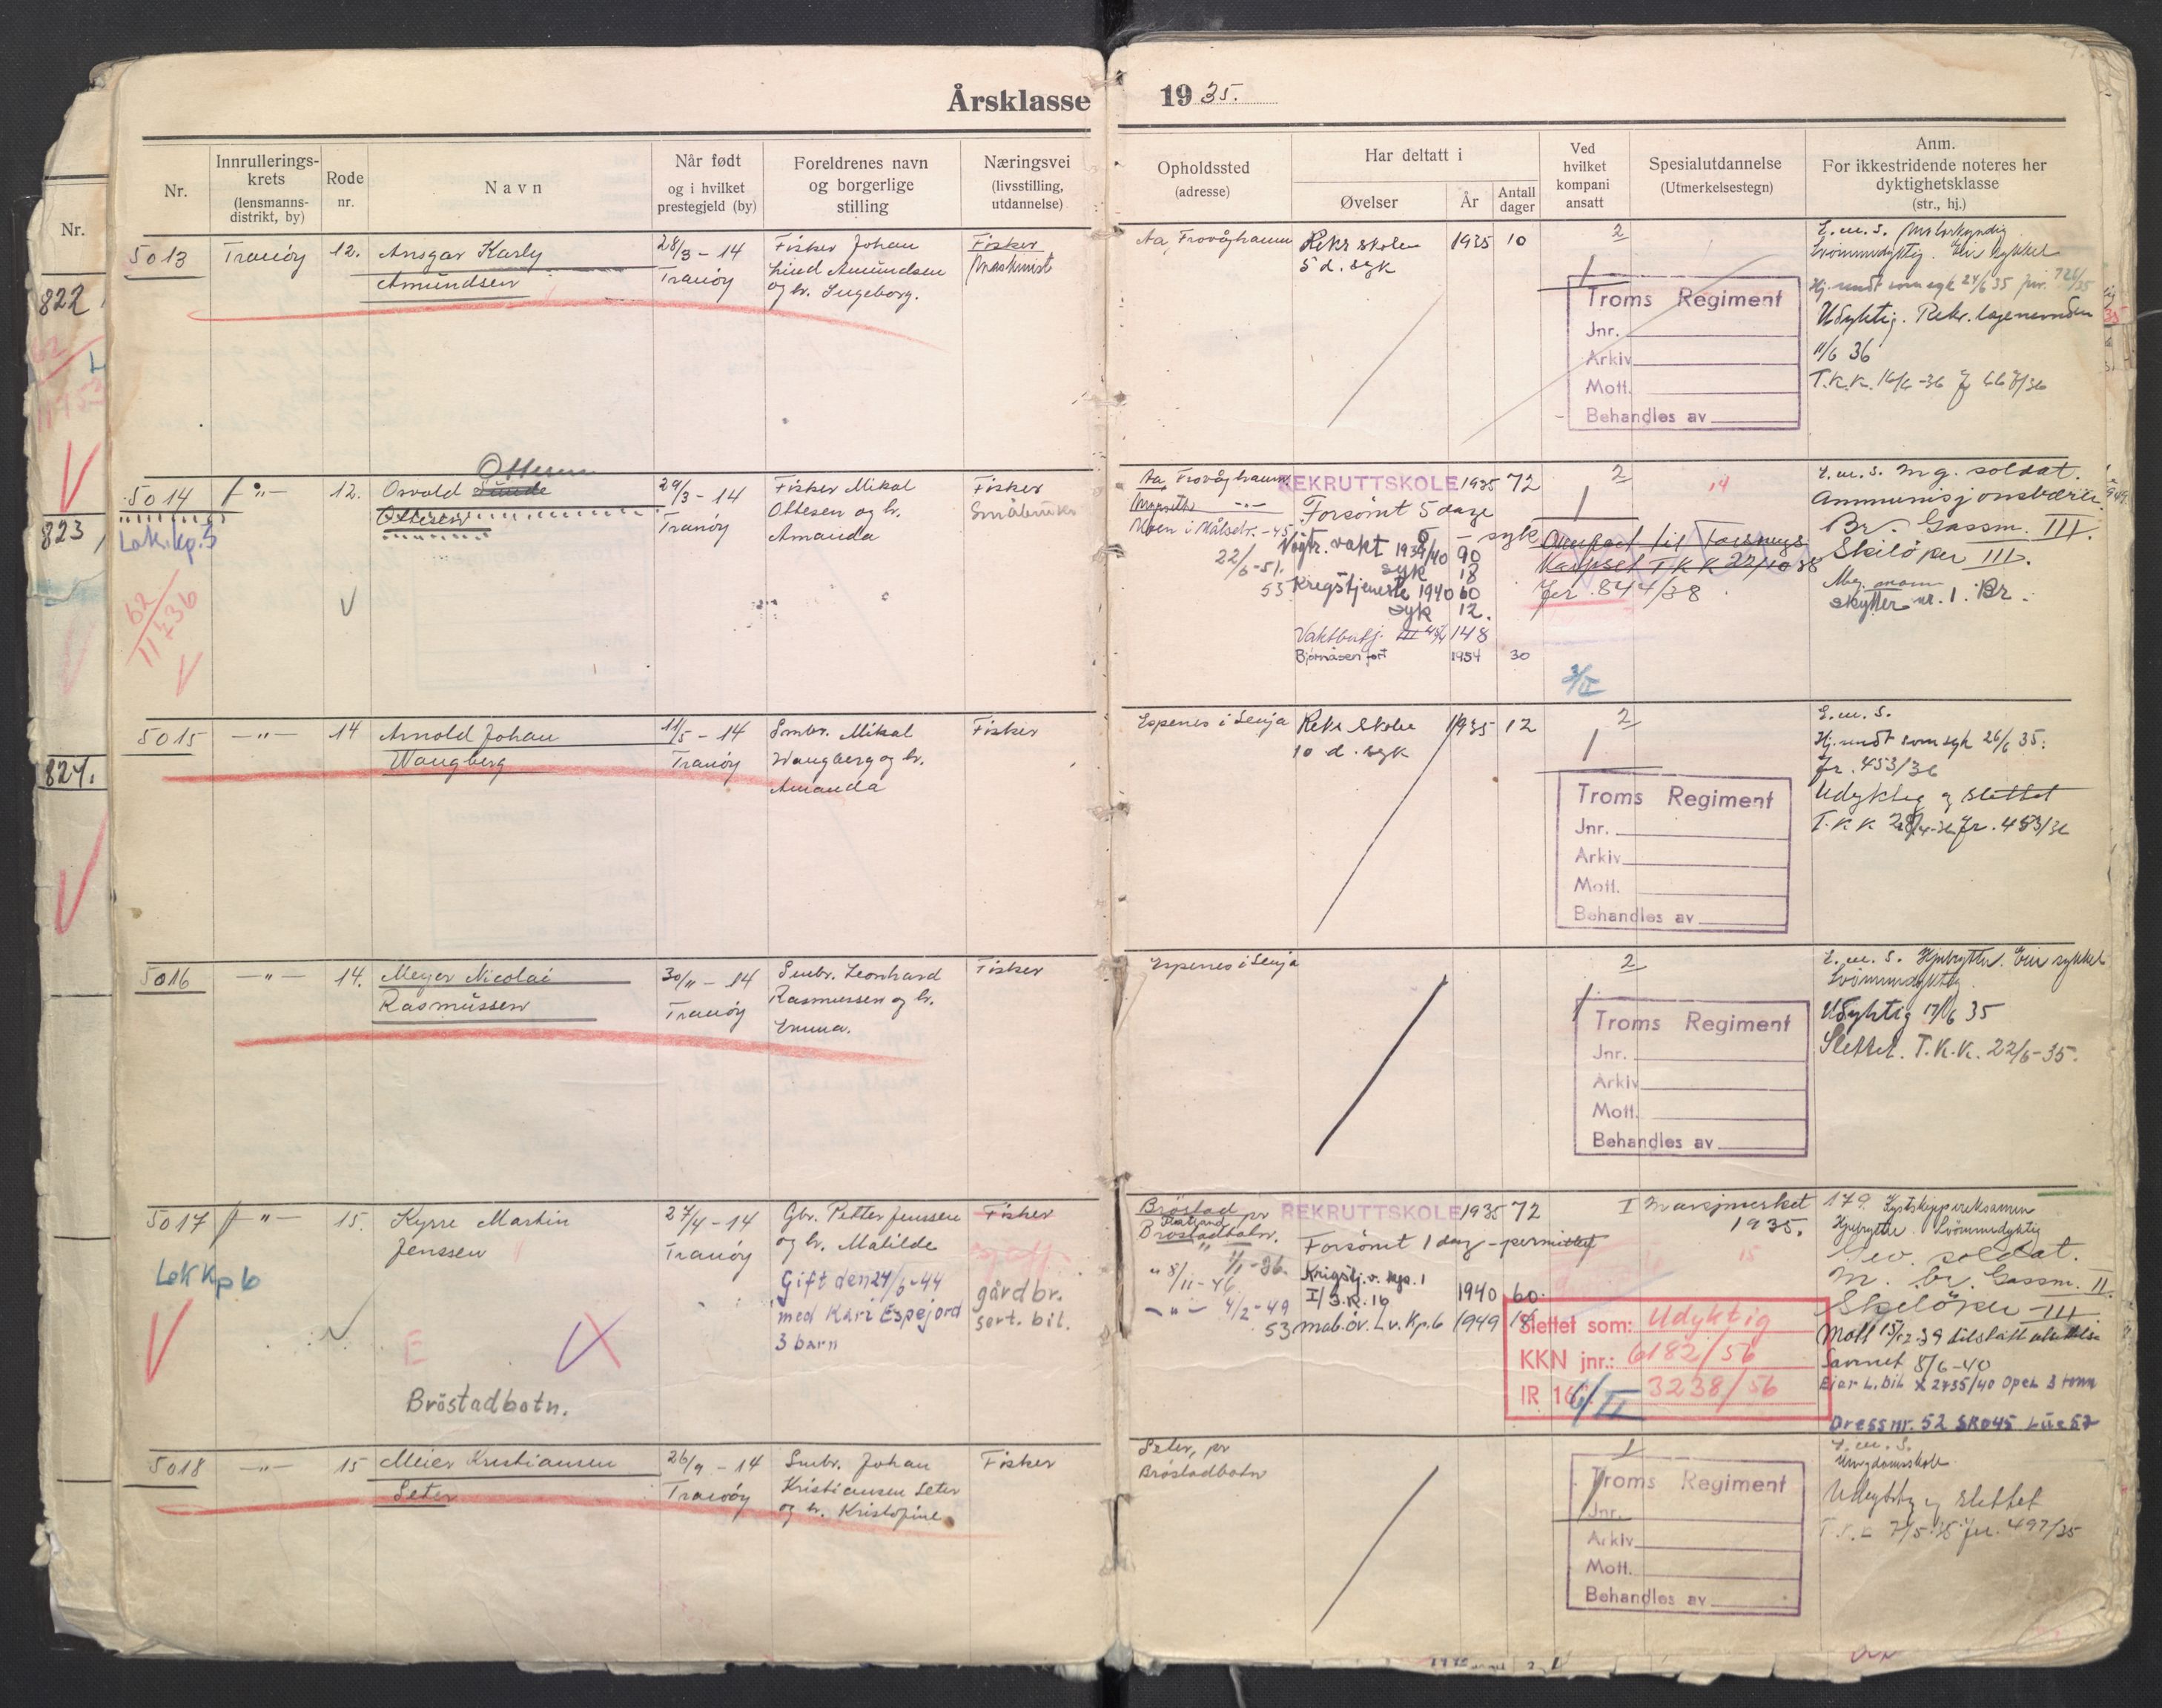 Årsklasse 1935.
Nr.
Innrullerings-
krets
(lensmanns-
distrikt, by)
Rode
nr.
Navn
Når født
og i hvilket
prestegjeld (by)
Foreldrenes navn
og borgerlige
stilling
Næringsvei
(livsstilling,
utdannelse)
Opholdssted
(adresse)
Har deltatt i
Øvelser
År
Antall
dager
Ved
hvilket
kompani
ansatt
Spesialutdannelse
(Utmerkelsestegn)
Anm.
For ikkestridende noteres her
dyktighetsklasse
(str., hj.)
Nr.
822
823
824.
5013 Tranöy 12. Ansgar Karly
Amundsen
28/3 - 14
Tranöy
Fisker Johan
Lind Amundsen
og h. Ingeborg.
Fisker
Maskinist
Aa, Frovåghamn
Rekr skolen 1935 10
5 d. syk
2
Troms Regiment
Jnr.
Arkiv
Mott.
Behandles av
E.m.S. Motorkyndig
Svömmedyktig. Eier sykkel
Hj. sendt som syk 24/6 35
Udyktig. Rekr. legenemnden
11/6 36
T.K.K. 16/6-36
5014 -"- 12. Osvald Sunde
Ottesen
Ottesen
Lok.kp.5
62
11436
29/3 - 14
Tranöy
Fisker Mikal
Ottesen og h.
Amanda
Fisker
Småbruker
Aa, Frovåghamn
Moen i Målselv. -45
22/6-51.
53
REKRUTTSKOLE 1935 72
Forsömt 5 dage
6 - syk
Nöytr. vakt 1939/40 90
syk 18
Krigstjeneste 1940 60
syk 12.
Vaktbatj. III 148
Bjørnåsen fort 1954 30
2
14
Overført til Forsynings
Kompset T K K 22/10 38
Jr. 844/38
3/II
E.m.S. Mg. soldat.
Ammunisjonsbærer.
Br. Gassm. III.
Skilöper III.
Skytter nr. 1. Br.
5015 -"- 14 Arnold Johan
Wangberg
11/5 - 14
Tranöy
Smbr. Mikal
Wangberg og h.
Amanda
Fisker
Espenes i Senja
Rekr Skole 1935 12
10 d. syk
2
Troms Regiment
Jnr.
Arkiv
Mott.
Behandles av
E.m.S.
Hj. sendt som syk 26/6 35.
Jr. 453/36
Udyktig og slettet
T.K.K 28/4-36 Jr. 453/36
5016 -"- 14. Meyer Nicolai
Rasmussen
30/11 - 14
Tranöy
Smbr. Leonhard
Rasmussen og h.
Emma.
Fisker
Espenes i Senja
2
Troms Regiment
Jnr.
Arkiv
Mott.
Behandles av
E.m.S. Hjulrytter. Eier sykkel
Svömmedyktig
Udyktig 17/6 35
Slettet. T.K.K. 22/6-35.
5017 -"- 15. Kyrre Martin
Jenssen
Lok Kp 6
E
Bröstadbotn.
27/4 - 14
Tranöy
Gbr. Petter Jenssen
og h. Matilde
Gift den 24/6-44
med Kari Espejord
3 barn
Fisker
gårdbr.
sert. bil.
Bröstad
pr
Bröstadbotn.
" 1/1-36.
" 8/11-46
-"- 4/2-49
53
REKRUTTSKOLE 1935 72
Forsömt 1 dag - permittert
Krigstj. v. kp. 1
I/I.R. 16 1940 60.
mob.öv. Lv. Kp. 6 1949 18
I Marsjmerket
1935.
15
Slettet som: Udyktig
KKN jnr.: 6182/56
IR 16 3238/56
6/II
179. Kystskippereksamen
Hjulrytter. Svömmedyktig
Gev. soldat.
M. br. Gassm. II
Skilöper III
Savnet 8/6-40
Eier L.bil X 2735/40 Opel 3 tonn
Dressnr. 52 SKO 45 Lue 57
5018 -"- 15 Meier Kristiansen
Seter
26/9 - 14
Tranöy
Smbr. Johan
Kristiansen Seter
og h. Kristofine
Fisker
Seter, pr
Bröstadbotn
1
Troms Regiment
Jnr.
Arkiv
Mott.
Behandles av
E.m.S.
Ungdomsskole
Udyktig og slettet
7/5-35 Jnr. 497/35